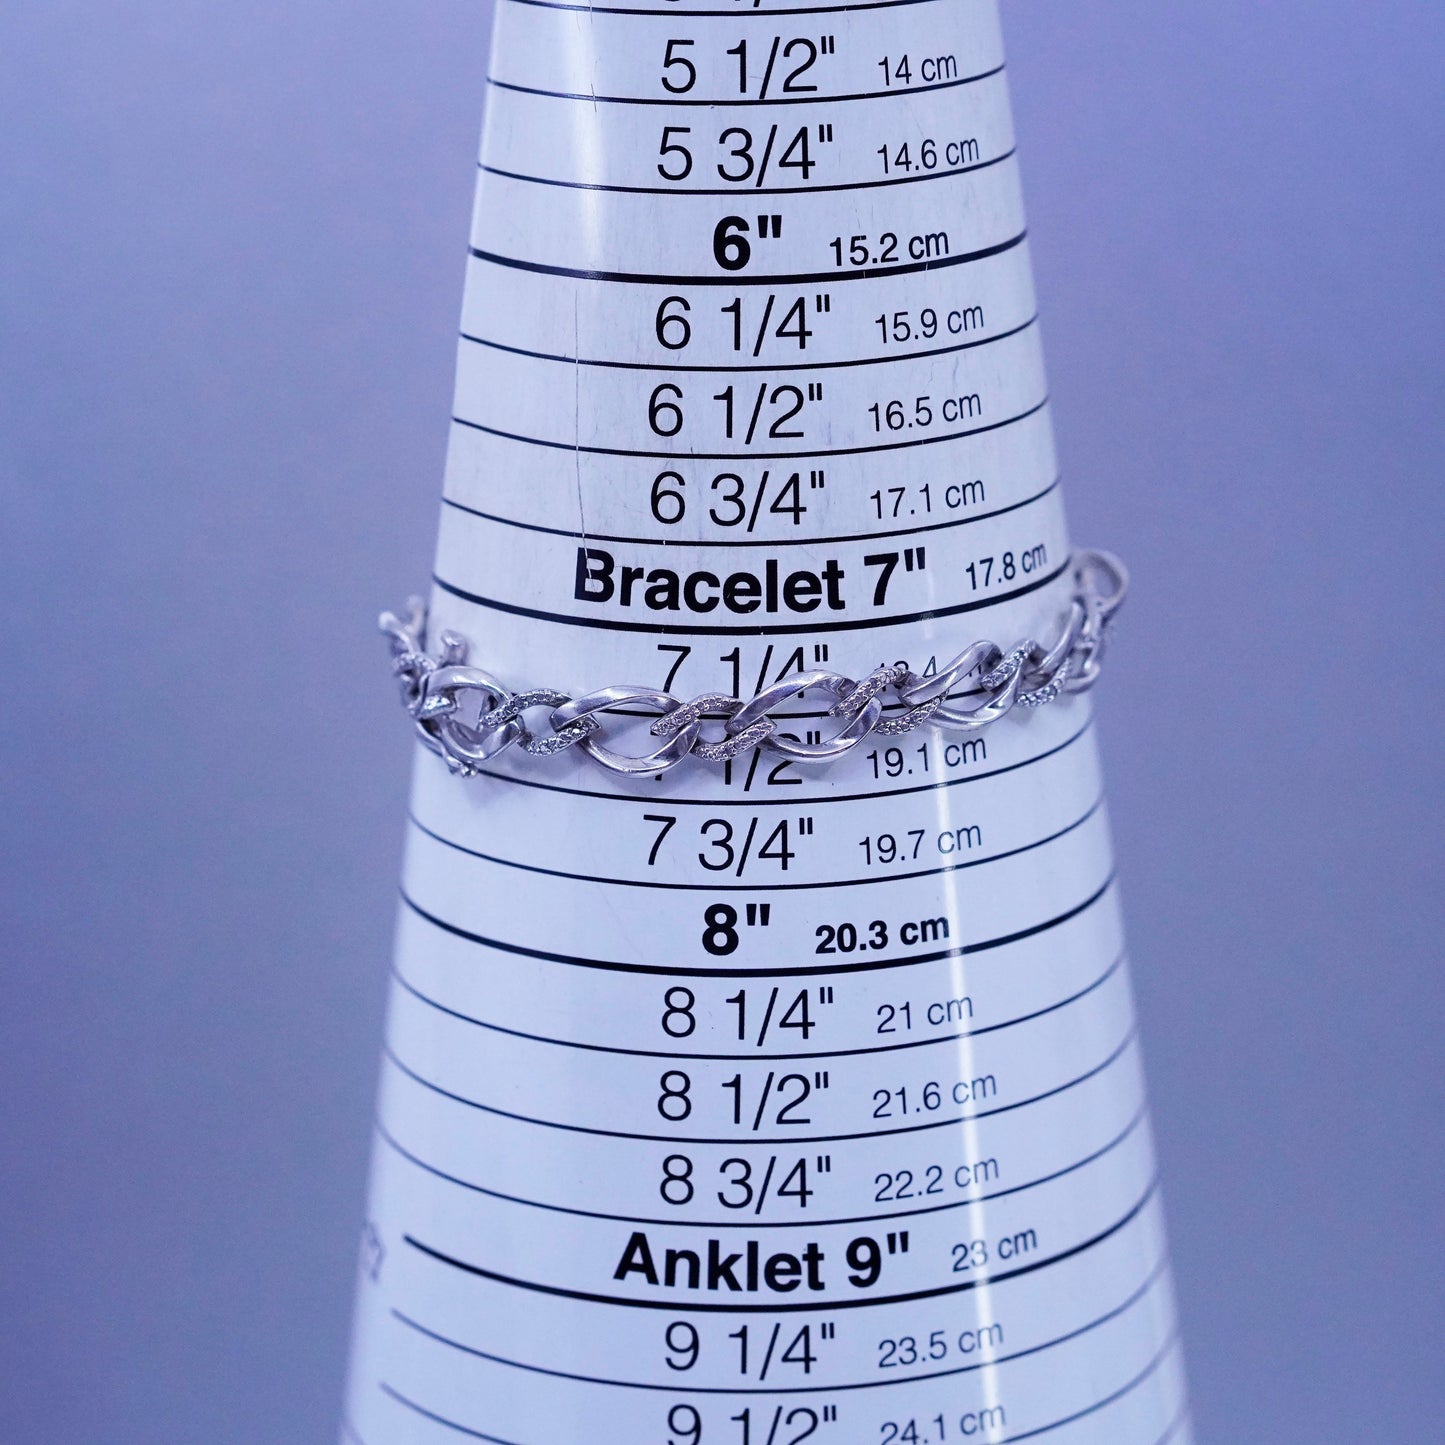 5 1/2" 14 cm
5 3/4" 14.6 cm
6" 15.2 cm
6 1/4" 15.9 cm
6 1/2" 16.5 cm
6 3/4" 17.1 cm
Bracelet 7" 17.8 cm
7 1/4"
7 1/2" 19.1 cm
7 3/4" 19.7 cm
8" 20.3 cm
8 1/4" 21 cm
8 1/2" 21.6 cm
8 3/4" 22.2 cm
Anklet 9" 23 cm
9 1/4" 23.5 cm
9 1/2" 24.1 cm